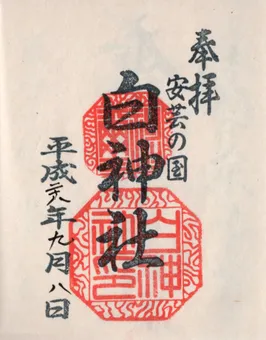 奉拝
安芸の国
白神社
平成廿八年九月八日